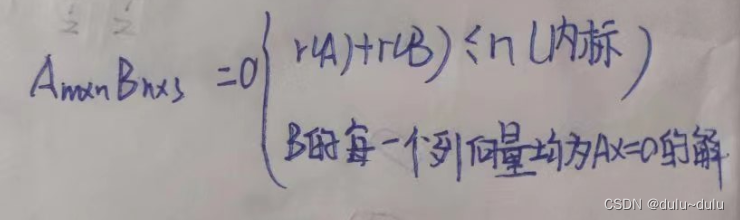 A_{m×n}B_{n×s} =0 { r(A)+r(B)≤n(内标)
B的每一个列向量均为AX=0的解
CSDN @dulu~dulu